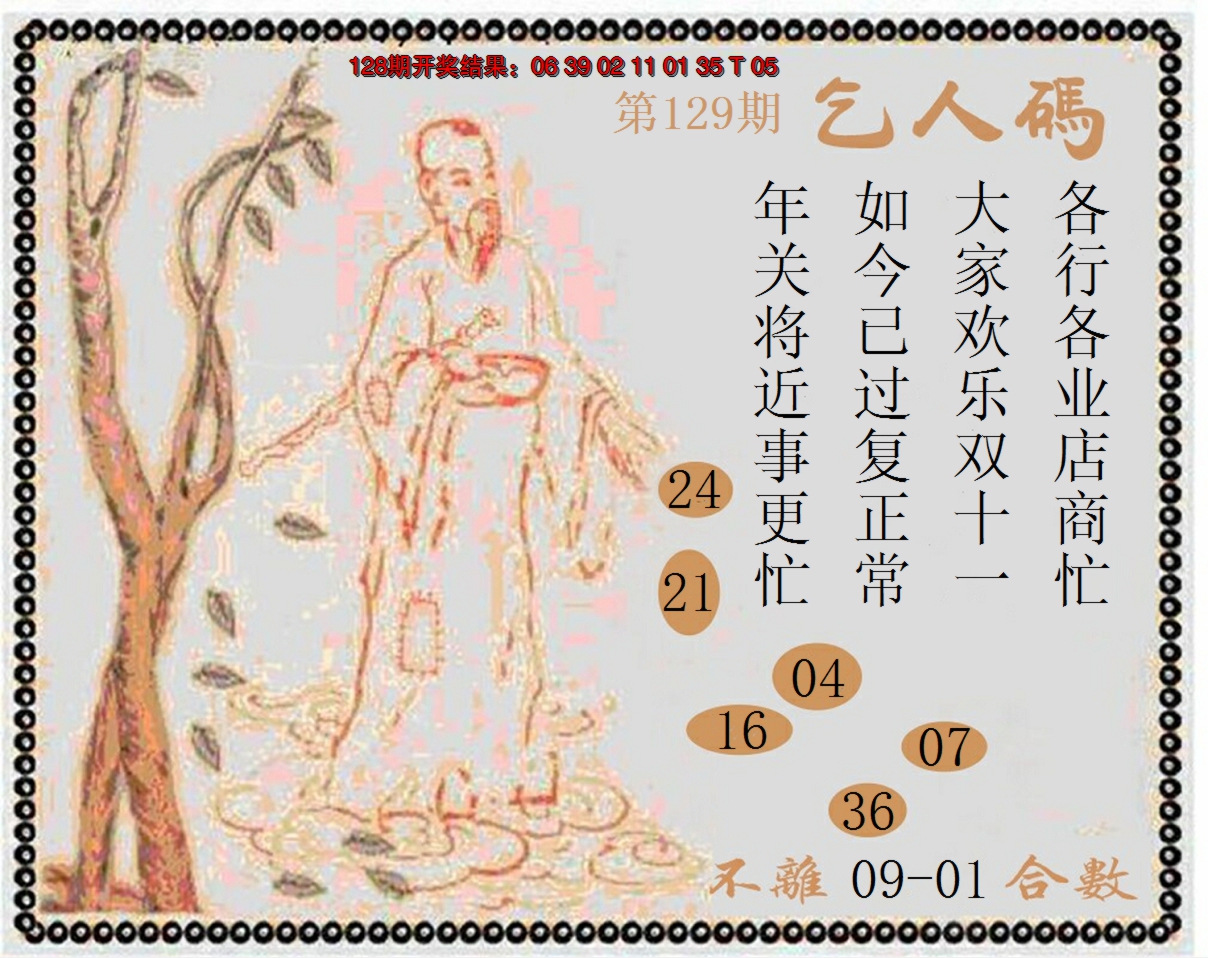 128期开奖结果：06 39 02 11 01 35 T 05
第129期 乞人碼
各行各业店商忙
大家欢乐双十一
如今已过复正常
年关将近事更忙
24
21
04
16
07
36
不離 09-01 合數